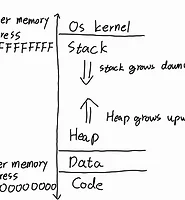 er memory
Os kernel
ress
FFFFFFFF
Stack
stack grows down
Heap grows upw
Heap
er memory
Data
ress
00000000
Code